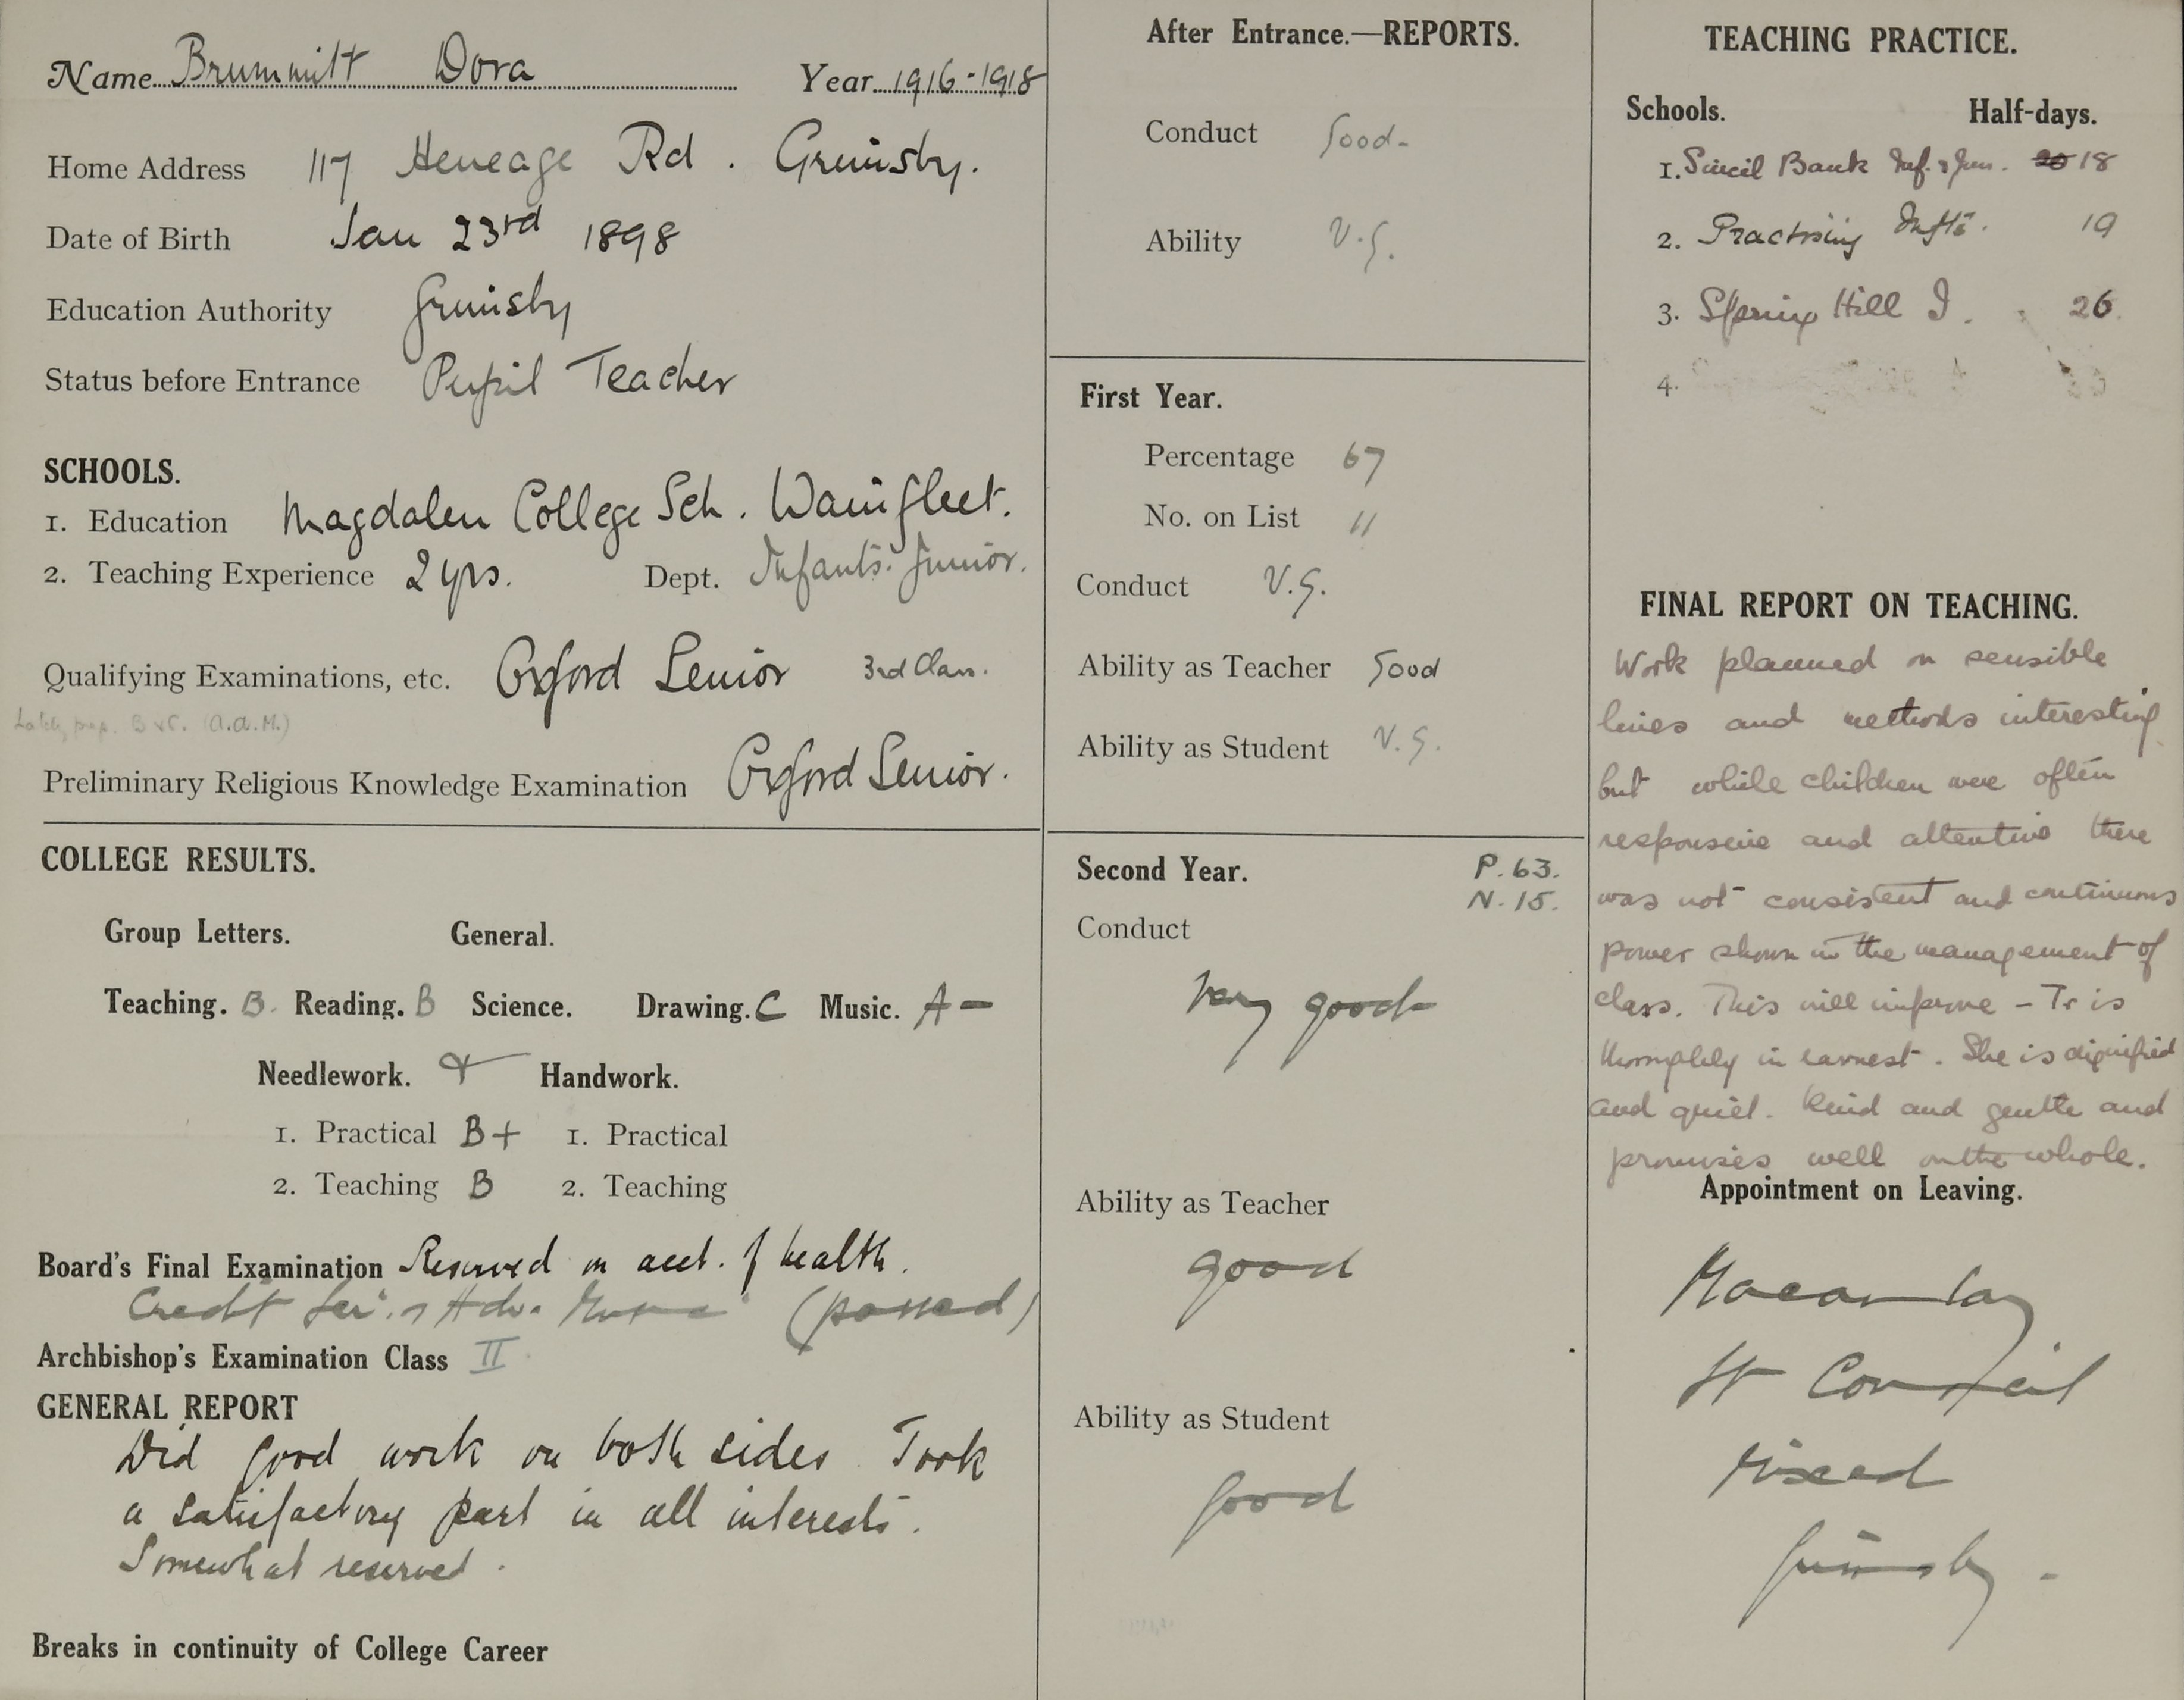 Name Brummitt Dora Year 1916-1918
Home Address 117 Heneage Rd. Grimsby.
Date of Birth Jan 23rd 1898
Education Authority Grimsby
Status before Entrance Pupil Teacher
SCHOOLS.
1. Education Magdalen College Sch. Wainfleet.
2. Teaching Experience 2 yrs. Dept. Infants. Junior.
Qualifying Examinations, etc. Oxford Senior 3rd Class.
prep. B & C. (a.a.M.)
Preliminary Religious Knowledge Examination Oxford Senior.
COLLEGE RESULTS.
Group Letters. General.
Teaching. B. Reading. B Science. Drawing. C Music. A-
Needlework. Handwork.
1. Practical B+ 1. Practical
2. Teaching B 2. Teaching
Board's Final Examination Reserved on acct. of health.
Credit Adv. (passed)
Archbishop's Examination Class II
GENERAL REPORT
Did good work on both sides. Took
a satisfactory part in all interests.
Somewhat reserved.
Breaks in continuity of College Career
After Entrance.—REPORTS.
Conduct Good-
Ability V.G.
First Year.
Percentage 67
No. on List 11
Conduct V.G.
Ability as Teacher Good
Ability as Student V.G.
Second Year. P. 63.
N. 15.
Conduct
Very good
Ability as Teacher
good
Ability as Student
good
TEACHING PRACTICE.
Schools. Half-days.
1. Sincil Bank Inf. & Jun. 20 18
2. Practising Infts. 19
3. Spring Hill I. 26.
4.
FINAL REPORT ON TEACHING.
Work planned on sensible
lines and methods interesting
but while children were often
responsive and attentive there
was not consistent and continuous
power shown in the management of
class. This will improve - Tr is
thoroughly in earnest. She is dignified
and quiet. Kind and gentle and
promises well on the whole.
Appointment on Leaving.
Macaulay
St Council
Mixed
Grimsby.